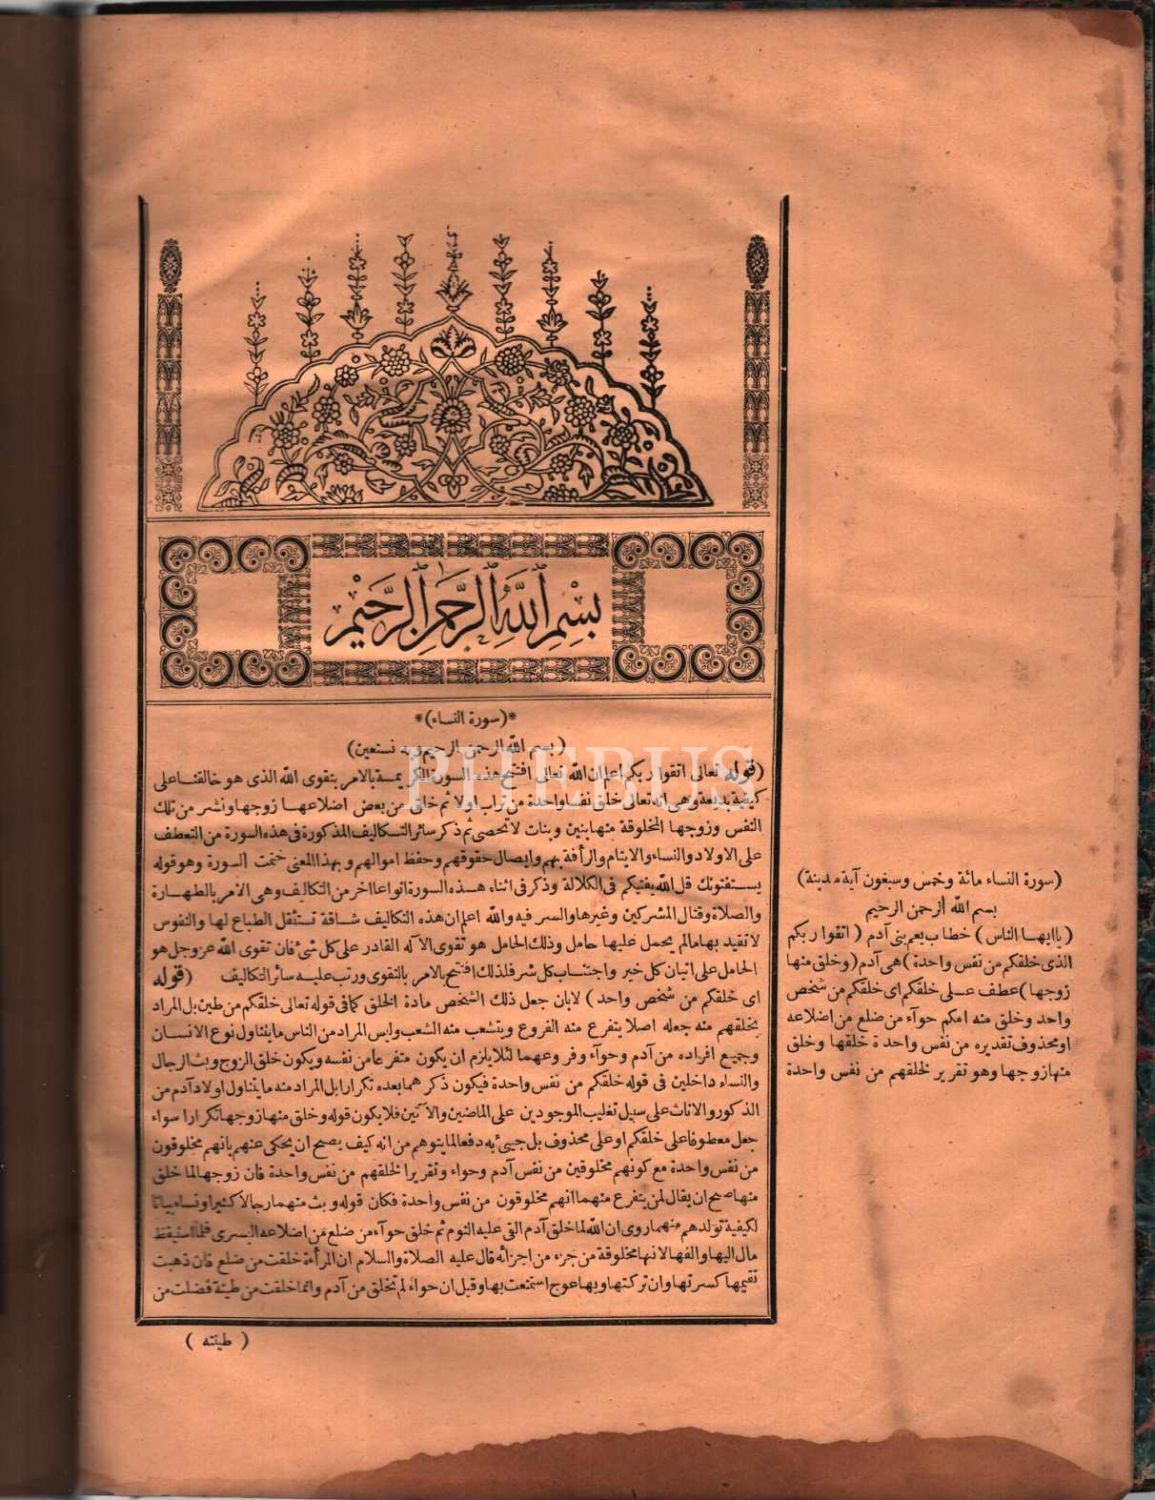 بسم الله الرحمن الرحيم
*(سورة النساء)*
(بسم الله الرحمن الرحيم وبه نستعين)
(قوله تعالى اتقوا ربكم) اعلم ان الله تعالى افتتح هذه السورة الكريمة بالامر بتقوى الله الذى هو خالقنا على
كيفية بديعة وهى انه تعالى خلق نفسا واحدة من تراب اولا ثم خلق من بعض اضلاعها زوجها ونشر من تلك
النفس وزوجها المخلوقة منها بنين وبنات لا تحصى ثم ذكر سائر التكاليف المذكورة فى هذه السورة من التعطف
على الاولاد والنساء والايتام والرأفة بهم وايصال حقوقهم وحفظ اموالهم وبهذا المعنى ختمت السورة وهو قوله
يستفتونك قل الله يفتيكم فى الكلالة وذكر فى اثناء هذه السورة انواعا اخر من التكاليف وهى الامر بالطهارة
والصلاة وقتال المشركين وغيرها والسر فيه والله اعلم ان هذه التكاليف شاقة تستثقل الطباع لها والنفوس
لا تقيد بها مالم يحمل عليها حامل وذلك الحامل هو تقوى الآله القادر على كل شئ فان تقوى الله عز وجل هو
الحامل على اتيان كل خير واجتناب كل شر فلذلك افتتح بالامر بالتقوى ورتب عليه سائر التكاليف (قوله
اى خلقكم من شخص واحد) لا بان جعل ذلك الشخص مادة الخلق كما فى قوله تعالى خلقكم من طين بل المراد
بخلقهم منه جعله اصلا يتفرع منه الفروع وينشعب منه الشعب وليس المراد من الناس ما يتناول نوع الانسان
وجميع افراده من آدم وحوآء وفروعهما لئلا يلزم ان يكون متفرعا من نفسه ويكون خلق الزوج وبث الرجال
والنساء داخلين فى قوله خلقكم من نفس واحدة فيكون ذكرهما بعده تكرارا بل المراد منه ما يتناول اولاد آدم من
الذكور والاناث على سبيل تغليب الموجودين على الماضين والآتين فلا يكون قوله وخلق منها زوجها تكرارا سواء
جعل معطوفا على خلقكم او على محذوف بل جيئ به دفعا لما يتوهم من انه كيف يصح ان يحكى عنهم بانهم مخلوقون
من نفس واحدة مع كونهم مخلوقين من نفس آدم وحواء وتقريرا لخلقهم من نفس واحدة فان زوجها لما خلق
منها صح ان يقال لمن يتفرع منهما انهم مخلوقون من نفس واحدة فكان قوله وبث منهما رجالا كثيرا ونساء بيانا
لكيفية تولدهم منهما روى ان الله لما خلق آدم القى عليه النوم ثم خلق حوآء من ضلع من اضلاعه اليسرى فلما استيقظ
مال اليها والفها لانها مخلوقة من جزء من اجزائه قال عليه الصلاة والسلام ان المرأة خلقت من ضلع فان ذهبت
تقيمها كسرتها وان تركتها وبها عوج استمتعت بها وقيل ان حواء لم تخلق من آدم وانما خلقت من طينة فضلت من
( طينته )
(سورة النساء مائة وخمس وسبعون آية مدينة)
بسم الله الرحمن الرحيم
(يا ايها الناس) خطاب يعم بنى آدم (اتقوا ربكم
الذى خلقكم من نفس واحدة) هى آدم (وخلق منها
زوجها) عطف على خلقكم اى خلقكم من شخص
واحد وخلق منه امكم حوآء من ضلع من اضلاعه
او محذوف تقديره من نفس واحدة خلقها وخلق
منها زوجها وهو تقرير لخلقهم من نفس واحدة
PHEBUS